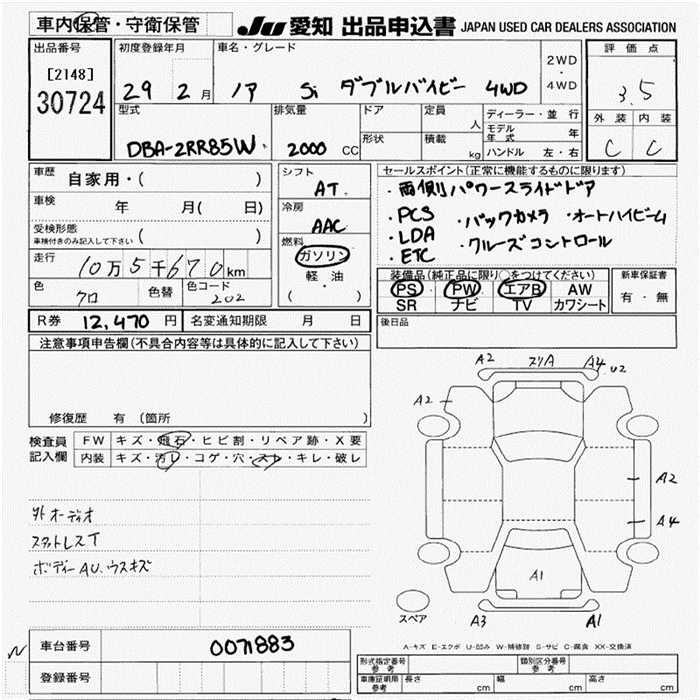 車内保管・守衛保管 JU 愛知 出品申込書 JAPAN USED CAR DEALERS ASSOCIATION
出品番号 初度登録年月 車名・グレード 2WD ・ 4WD 評価点
[2148]
30724 29 2月 ノア Si ダブルバイビー 4WD 3.5
型式 排気量 ドア 定員 人 ディーラー・並行 外装 内装
形状 積載 kg モデル年式 年
DBA-ZRR85W 2000 CC ハンドル 左・右 C C
車歴 自家用・( ) シフト AT セールスポイント(正常に機能するものに限ります)
車検 年 月( 日) 冷房 AAC ・両側パワースライドドア
受検形態 ( ) ・PCS ・バックカメラ ・オートハイビーム
車検付きのみ記入して下さい 燃料 ・LDA ・クルーズコントロール
走行 10万5千670km ガソリン ・ETC
軽・油
( )
色 クロ 色替 色コード 202 装備品(純正品に限り○をつけてください) 新車保証書
PS PW エアB AW 有・無
SR ナビ TV カワシート
R券 12,470円 名変通知期限 月 日 後日品
注意事項申告欄(不具合内容等は具体的に記入して下さい)
修復歴 有(箇所 )
A2 スリA A4 U2
A2
A2
A4
A1
スペア A3 A1
検査員記入欄 FW キズ・飛石・ヒビ割・リペア跡・X要
内装 キズ・汚レ・コゲ・穴・スレ・キレ・破レ
外オーディオ
スタットレスT
ボディーAU、ウスキズ
A-キズ E-エクボ U-凹み W-補修跡 S-サビ C-腐食 XX-交換済
N 車台番号 0071883
登録番号
型式指定番号 参考 類別区分番号 参考
車庫証明用 参考 長さ cm 幅 cm 高さ cm